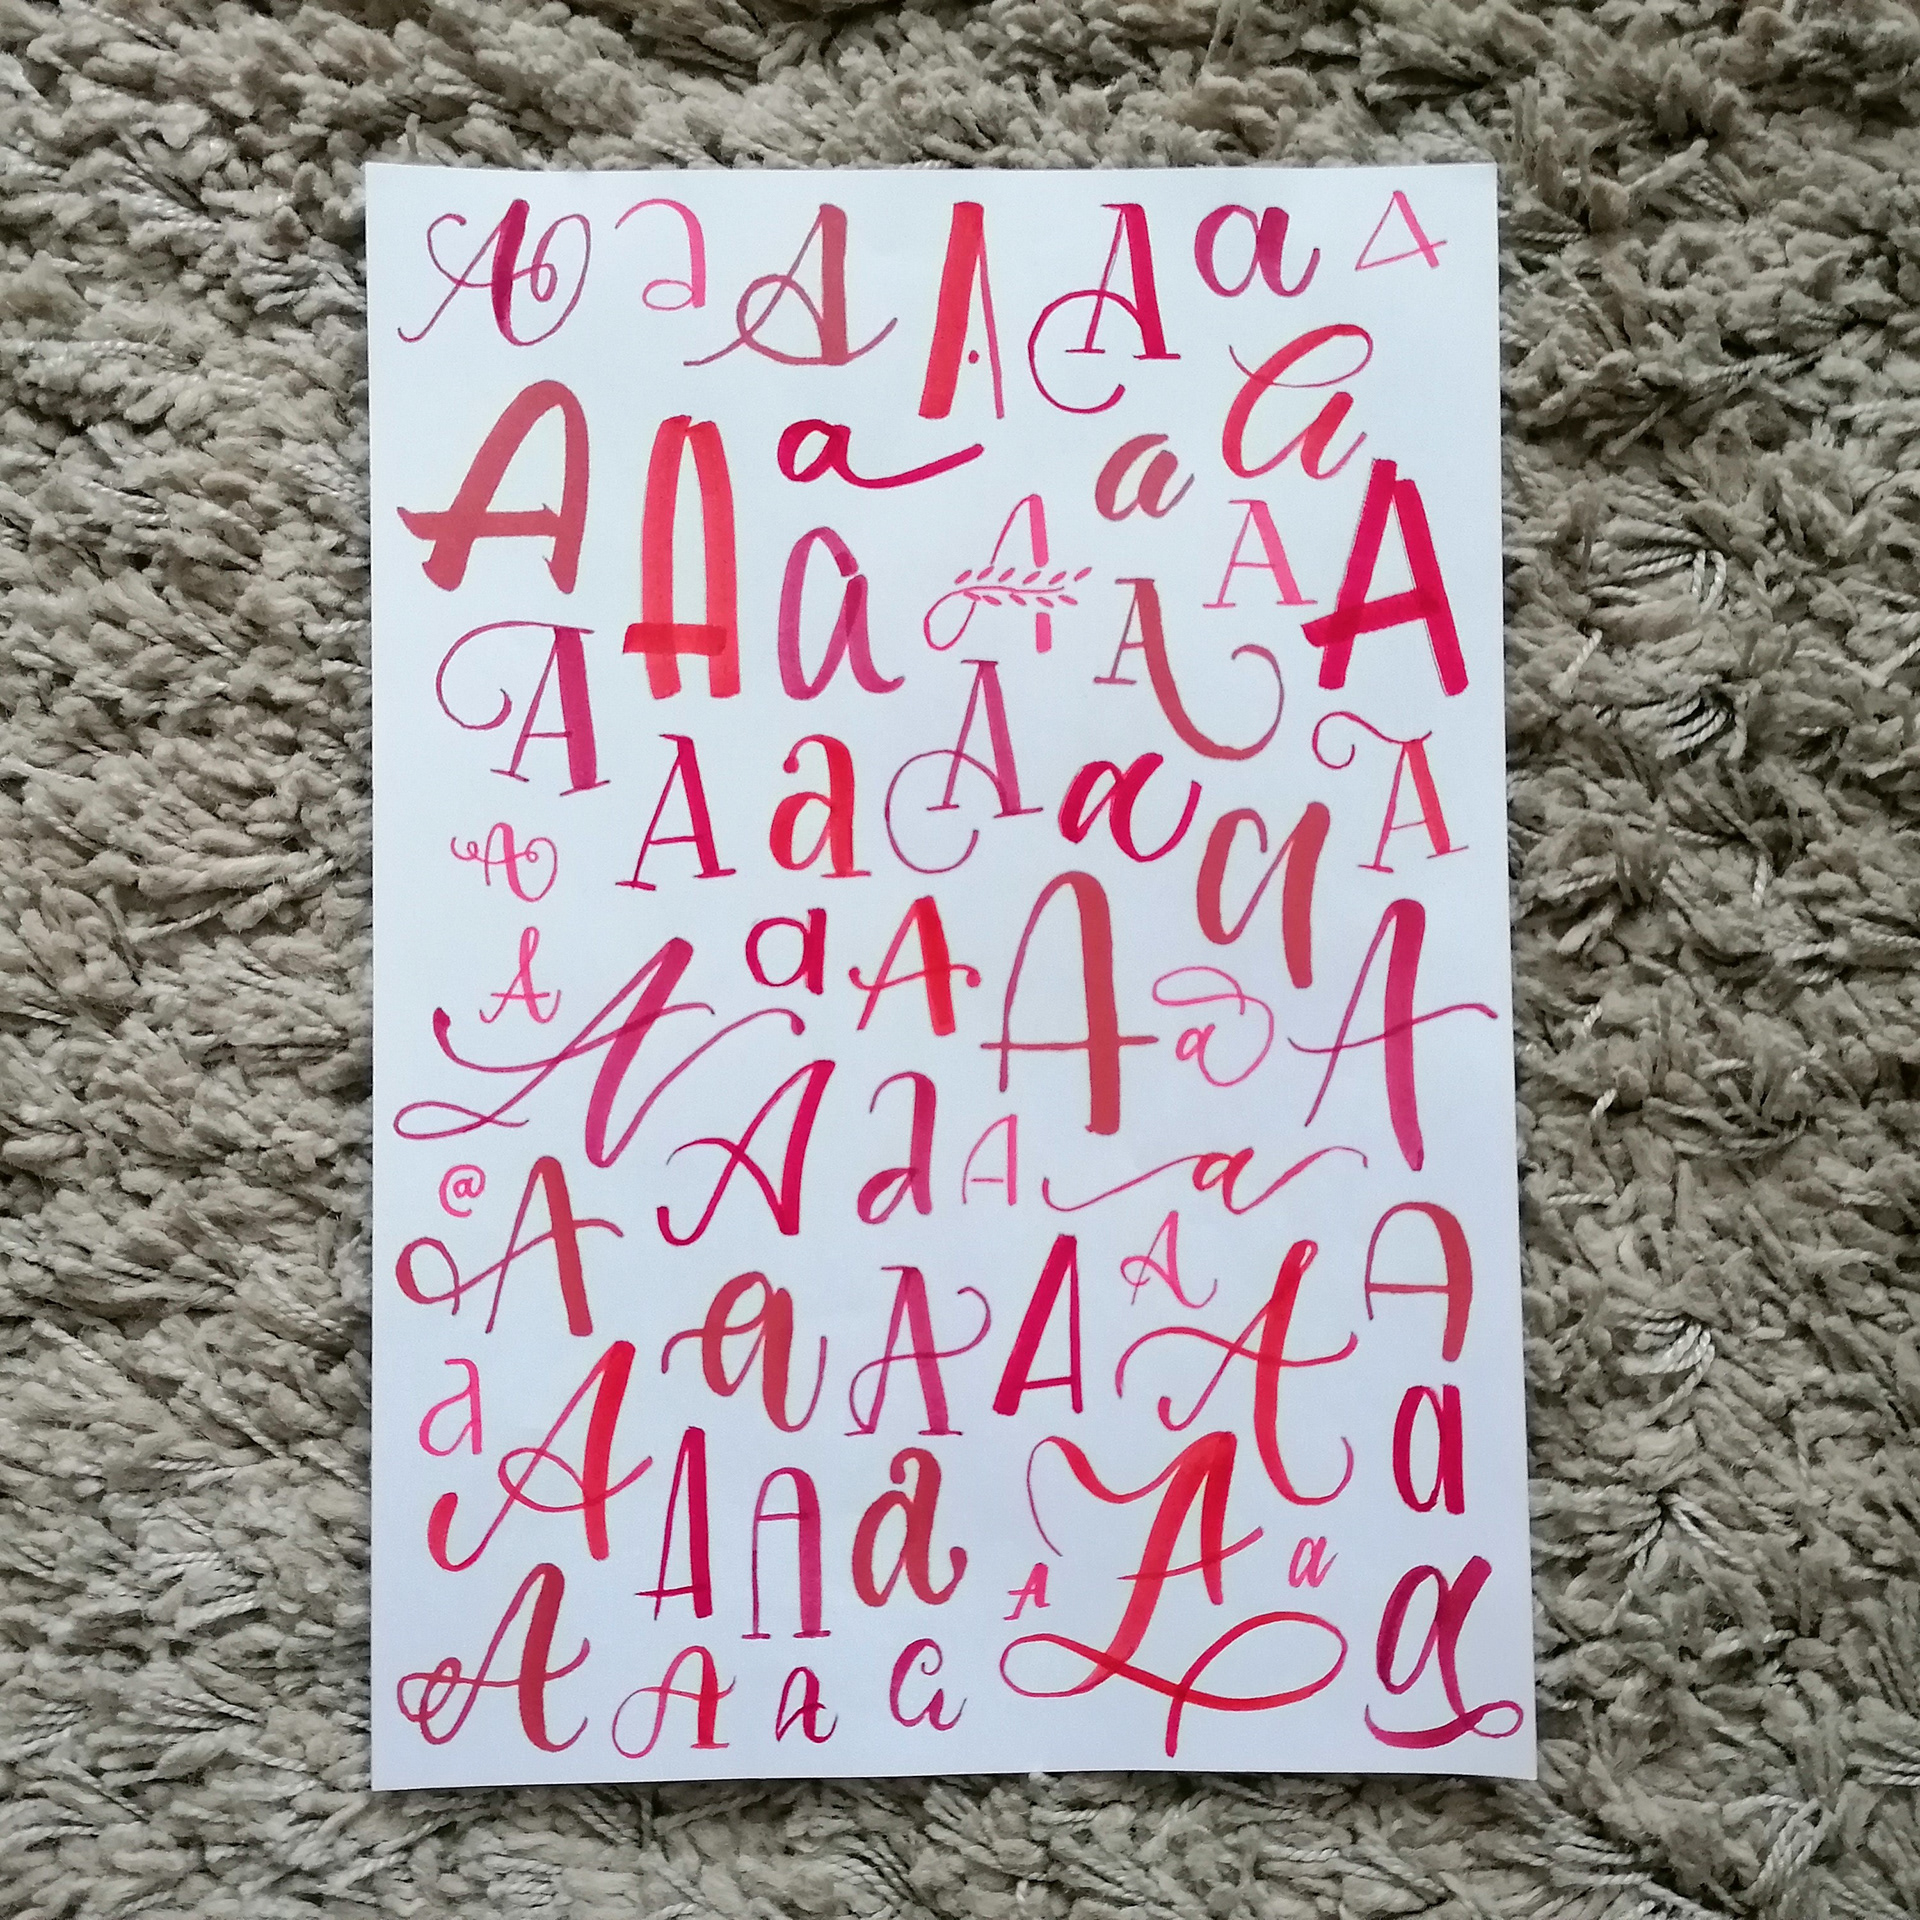 A a A A A a A
A A a a a
A a A A A A
A A a A a a A
A a A A a A
A A A a A a
@ A a A A A A
a A A A a A A a
A A A a A A a a